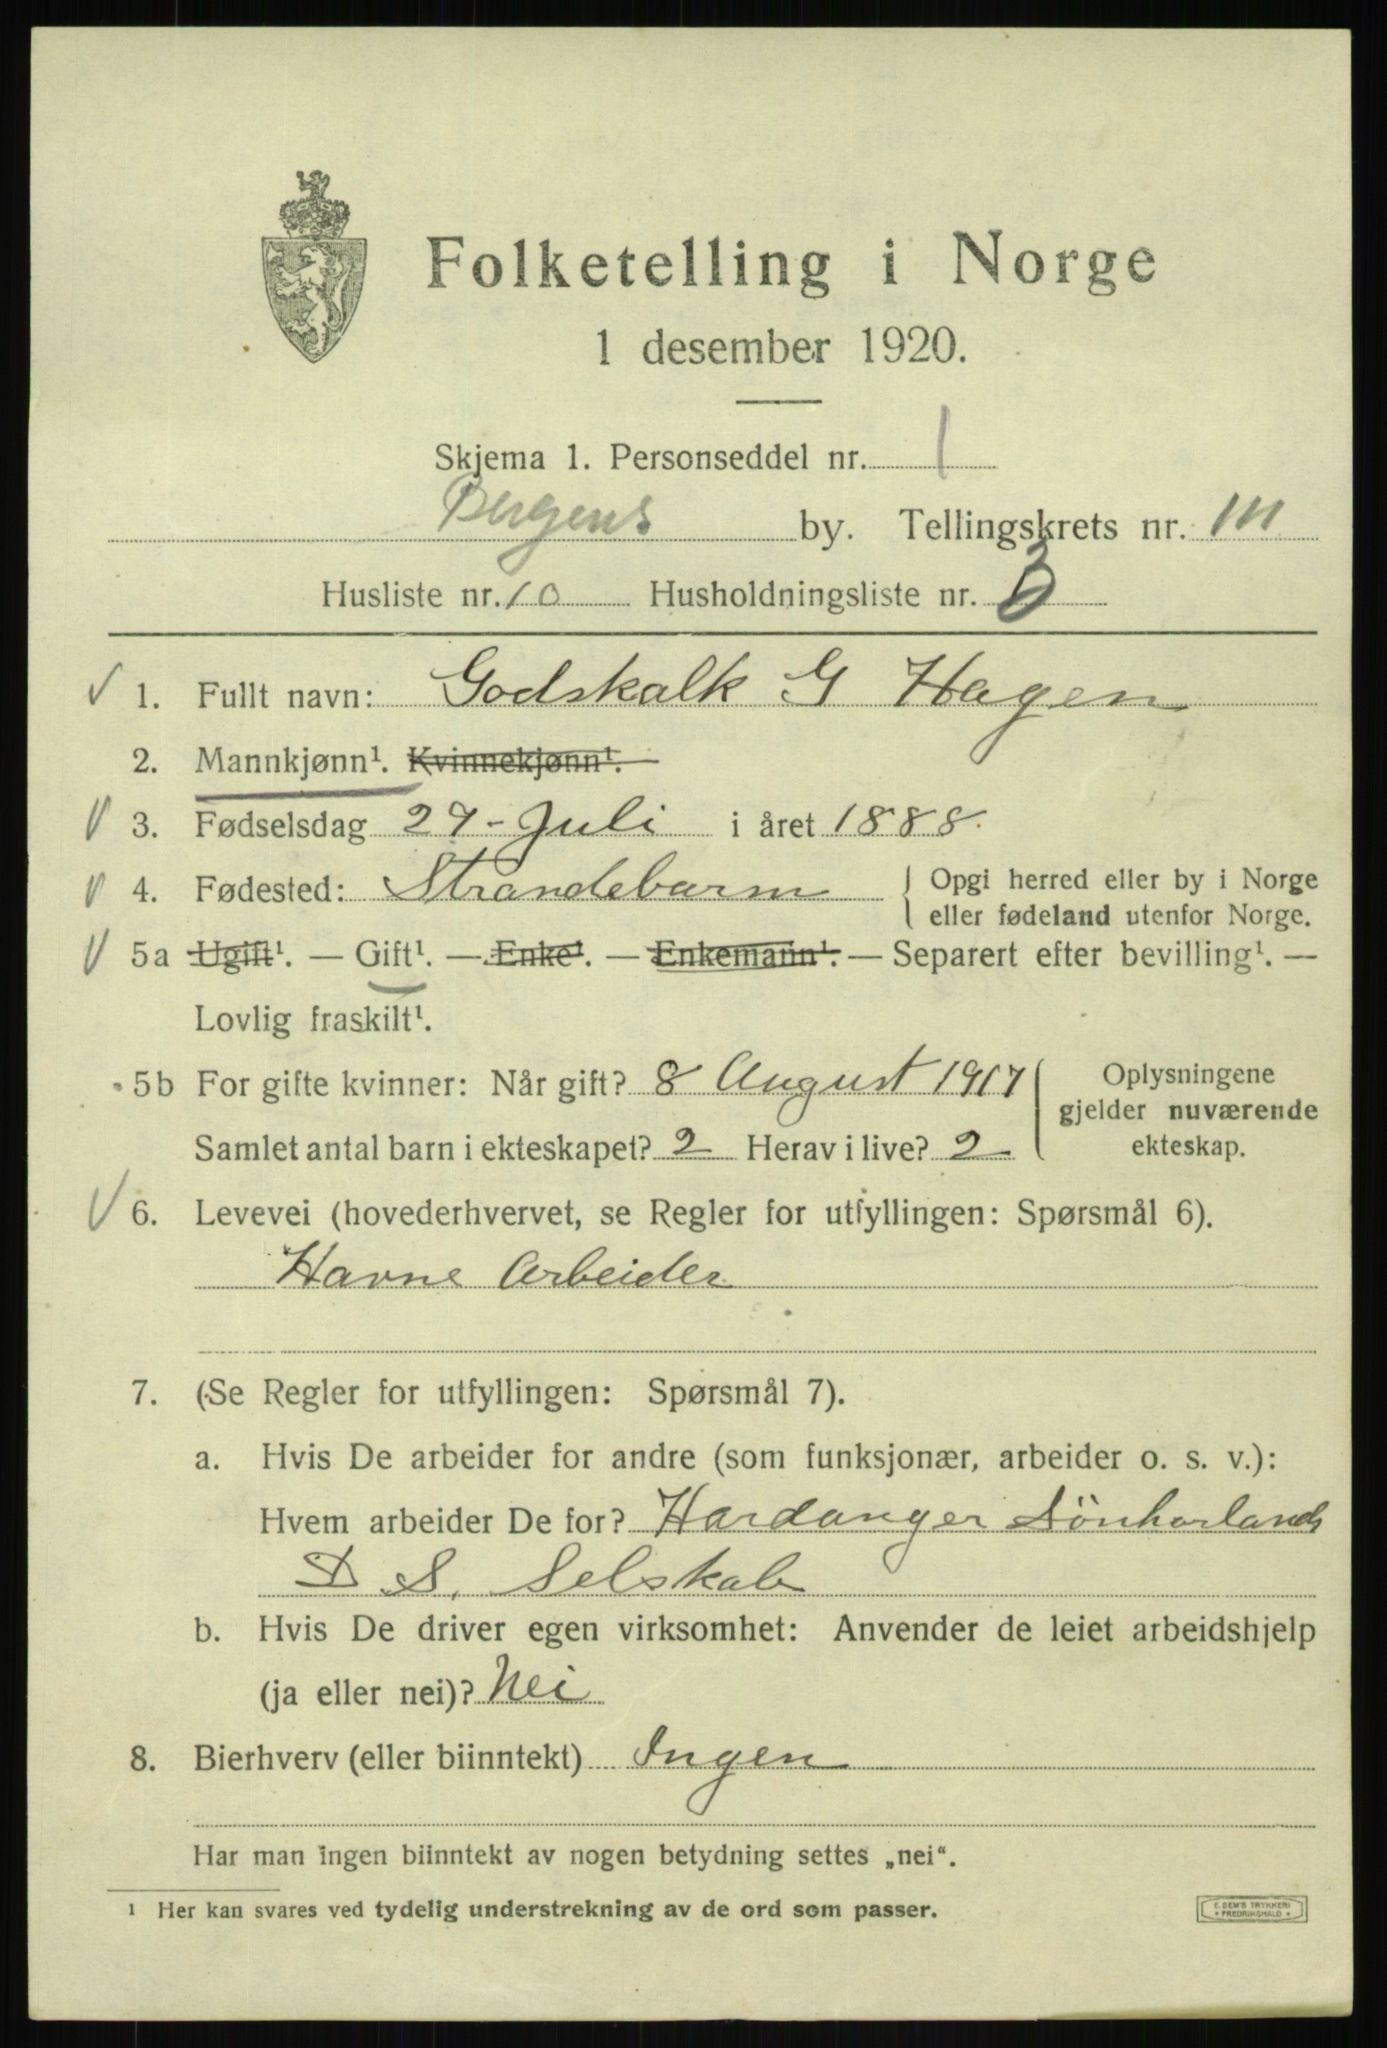 Folketelling i Norge
1 desember 1920.
Skjema 1. Personseddel nr. 1
Bergens by. Tellingskrets nr. 111
Husliste nr. 10 Husholdningsliste nr. 3
1. Fullt navn: Godskalk G Hagen
2. Mannkjønn¹. Kvinnekjønn¹.
3. Fødselsdag 27 - Juli i året 1888.
4. Fødested: Strandebarm { Opgi herred eller by i Norge
eller fødeland utenfor Norge.
5a Ugift¹. — Gift¹. — Enke¹. — Enkemann¹. — Separert efter bevilling¹. —
Lovlig fraskilt¹.
5b For gifte kvinner: Når gift? 8 August 1917 { Oplysningene
gjelder nuværende
Samlet antal barn i ekteskapet? 2 Herav i live? 2
ekteskap.
6. Levevei (hovederhvervet, se Regler for utfyllingen: Spørsmål 6).
Havne Arbeider
7. (Se Regler for utfyllingen: Spørsmål 7).
a. Hvis De arbeider for andre (som funksjonær, arbeider o. s. v.):
Hvem arbeider De for? Hardanger Sönhorlands
D S. Selskab
b. Hvis De driver egen virksomhet: Anvender de leiet arbeidshjelp
(ja eller nei)? Nei
8. Bierhverv (eller biinntekt) Ingen
Har man ingen biinntekt av nogen betydning settes „nei“.
¹ Her kan svares ved tydelig understrekning av de ord som passer.
E. SEM'S TRYKKERI
• FREDRIKSHALD •